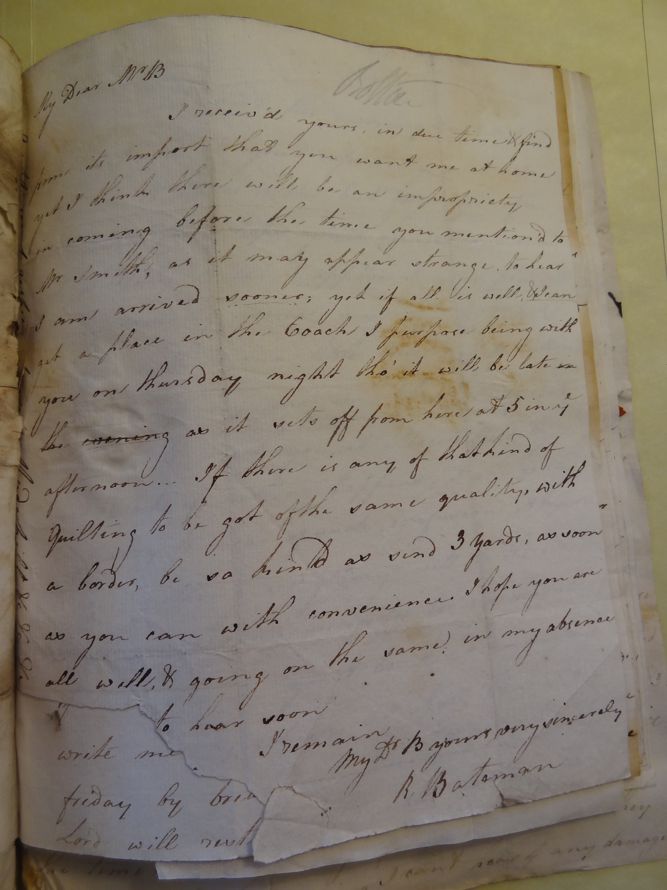 My Dear Mr B
I receiv'd yours, in due time & find
from its import that you want me at home
yet I think there will be an impropriety
in coming before the time you mention'd to
Mr Smith, as it may appear strange to hear
I am arrived sooner; yet if all is well, & I can
get a place in the Coach I purpose being with
you on thursday night tho' it will be late in
the evening as it sets off from here at 5 in ye
afternoon... If there is any of that kind of
Quilting to be got of the same quality, with
a border, be so kind as send 3 yards, as soon
as you can with convenience I hope you are
all well, & going on the same, in my absence
to hear soon
I remain
write me
My Dr B yours very sincerely
R. Bateman
friday by brea
Lord will
the time
I can't
of any damage